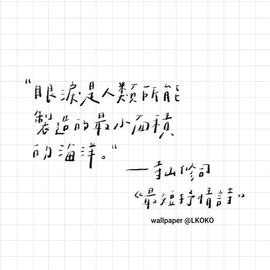 "眼淚是人類所能
製造的最小面積
的海洋。"
—寺山修司
《最短抒情詩》
wallpaper @LKOKO